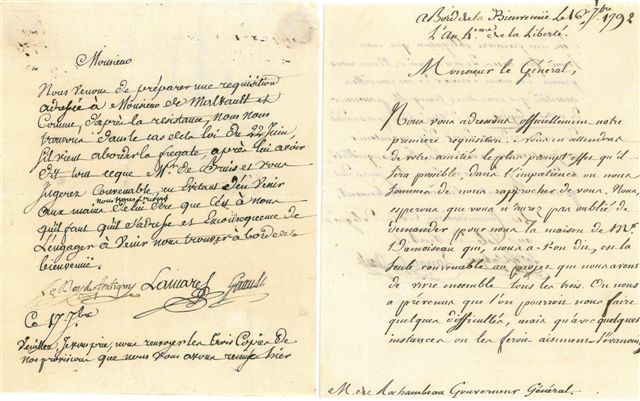 Monsieur
Nous venons de préparer une requisition
adressée à Monsieur de Malvault et
Comme, d'après la resistance, nous nous
trouvons dans le cas de la loi du 22 Juin,
s'il vient aborder la fregate, après lui avoir
dit tout ce que Mr. de Bruis et vous
Jugerez Convenable, en évitant d'en Venir
aux mains, nous vous prions de lui dire que C'est à nous
qu'il faut qu'il s'adresse et En consequence de
L'engager à Venir nous trouver à bord de la
bienvenüe.
Lamarre
Ce 17 7bre
Veuillez, Je vous prie, nous renvoyer les trois Copies de
nos provisions que nous vous avons remises hier
a Bord de la Bienvenüe Le 16 7bre 1792
L'an 4eme de la Liberté.
Monsieur le Général,
Nous vous adressons officiellement notre
première requisition. Nous en attendons
de votre amitié le plus prompt effet qu'il
sera possible dans l'impatience ou nous
sommes de nous rapprocher de vous. Nous
esperons que vous n'aurez pas oublié de
demander pour nous la maison de Mr.
Damoiseau qui, nous a-t-on dit, est la
seule convenable au projet que nous avons
de vivre ensemble tous les trois. On nous
a prévenus que l'on pourroit nous faire
quelques difficultés, mais qu'avec quelques
instances on les feroit aisement s'évanouir.
M. de Rochambeau Gouverneur Général.